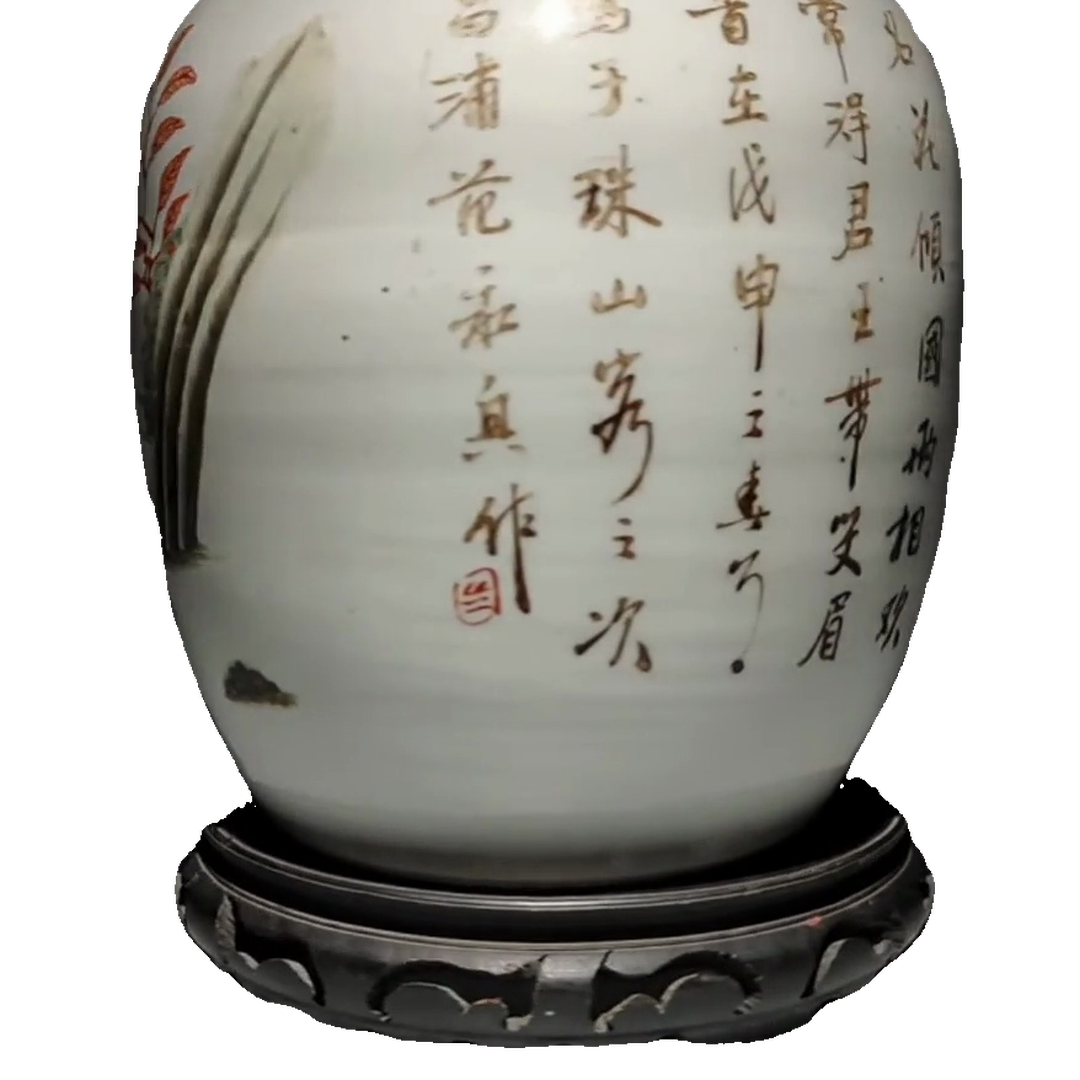 名花傾國兩相歡
常得君王帶笑眉
旹在戊申之春月
寫于珠山客之次
昌浦范永作